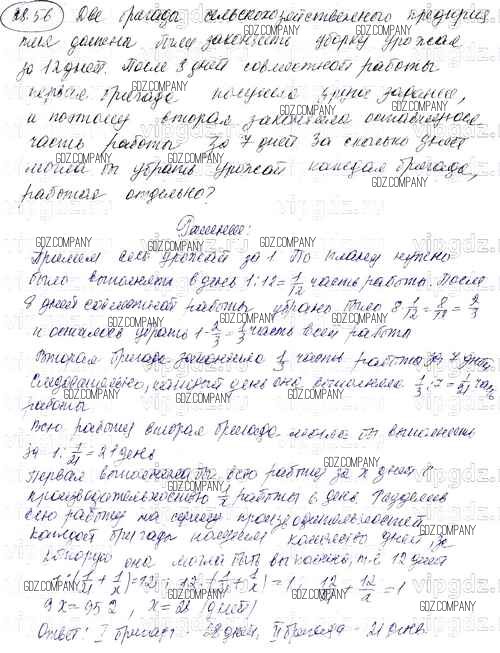 28.56 Две бригады сельскохозяйственного предприя
тия должны были закончить уборку урожая
за 12 дней. После 8 дней совместной работы
первая бригада получила другое задание,
и поэтому вторая закончила оставшуюся
часть работы за 7 дней За сколько дней
могла бы убрать урожай каждая бригада,
работая отдельно?
Решение:
Примем весь урожай за 1. По плану нужно
было выполнять в день 1:12=1/12 часть работы. После
8 дней совместной работы убрано было 8·1/12=8/12=2/3
и осталось убрать 1-2/3=1/3 часть всей работы
Вторая бригада закончила 1/3 часть работы за 7 дней
Следовательно, каждый день она выполняла 1/3:7=1/21 часть
работы
Всю работу вторая бригада могла бы выполнить
за 1:1/21=21 день
Первая выполнила бы всю работу за x дней с
производительностью 1/x работы в день. Разделив
всю работу на сумму производительностей
каждой бригады находим количество дней, за
которую она могла быть выполнена, т.е. 12 дней
1:(1/21+1/x)=12; 12·(1/21+1/x)=1; 12/21+12/x=1
9x=252, x=28 (дней)
Ответ: I бригада - 28 дней, II бригада - 21 день
GDZ.COMPANY
vipgdz.ru